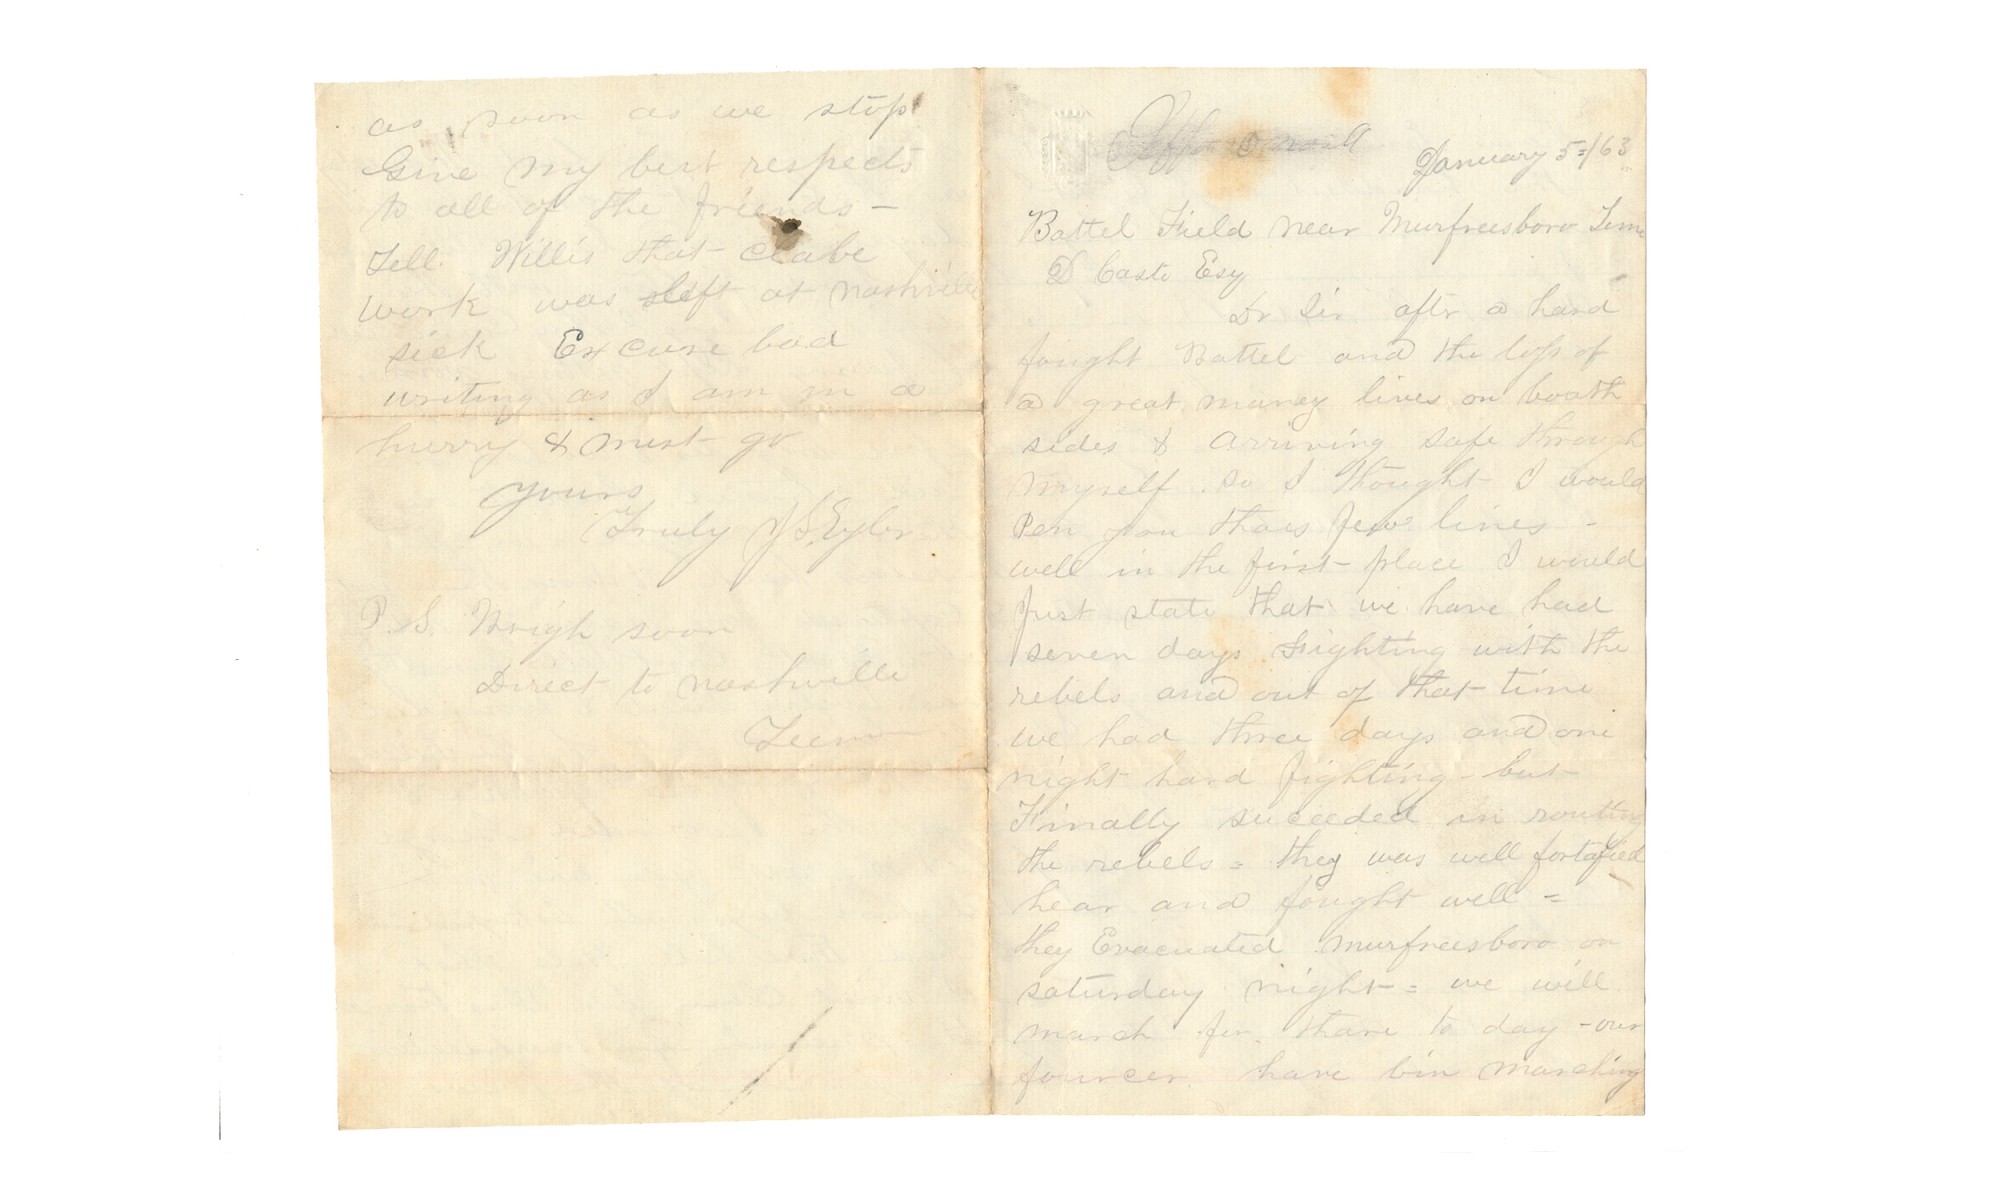 January 5=/63
Battel Field near Murfreesboro Tenn
D Casto Esq
Dr Sir after a hard
fought Battel and the loss of
a great maney lives on boath
sides & arriving safe through
myself so I thought I would
Pen you thais few lines -
well in the first place I would
Just state that we have had
seven days Fighting with the
rebels and out of that time
we had three days and one
night hard fighting - but
Finally succeeded in routing
the rebels = they was well fortafied
hear and fought well =
they Evacuated murfreesboro on
saturday night = we will
march for thare to day - our
fourcer have bin marching
as soon as we stop
Give my best respects
to all of the friends -
Tell Willis that Clabe
work was left at nashville
sick Excuse bad
writing as I am in a
hurry & must go
yours
Truly J S. Eyler
P.S. Wrigh soon
Direct to nashville
Teenn